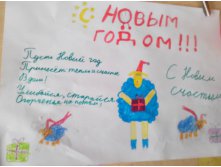 С НОВЫМ
ГОДОМ!!!
Пусть Новый год
Принесёт тепло и счастье
В дом!
Улыбайся, старайся
Огорчения на потом!
С Новым
счастьем